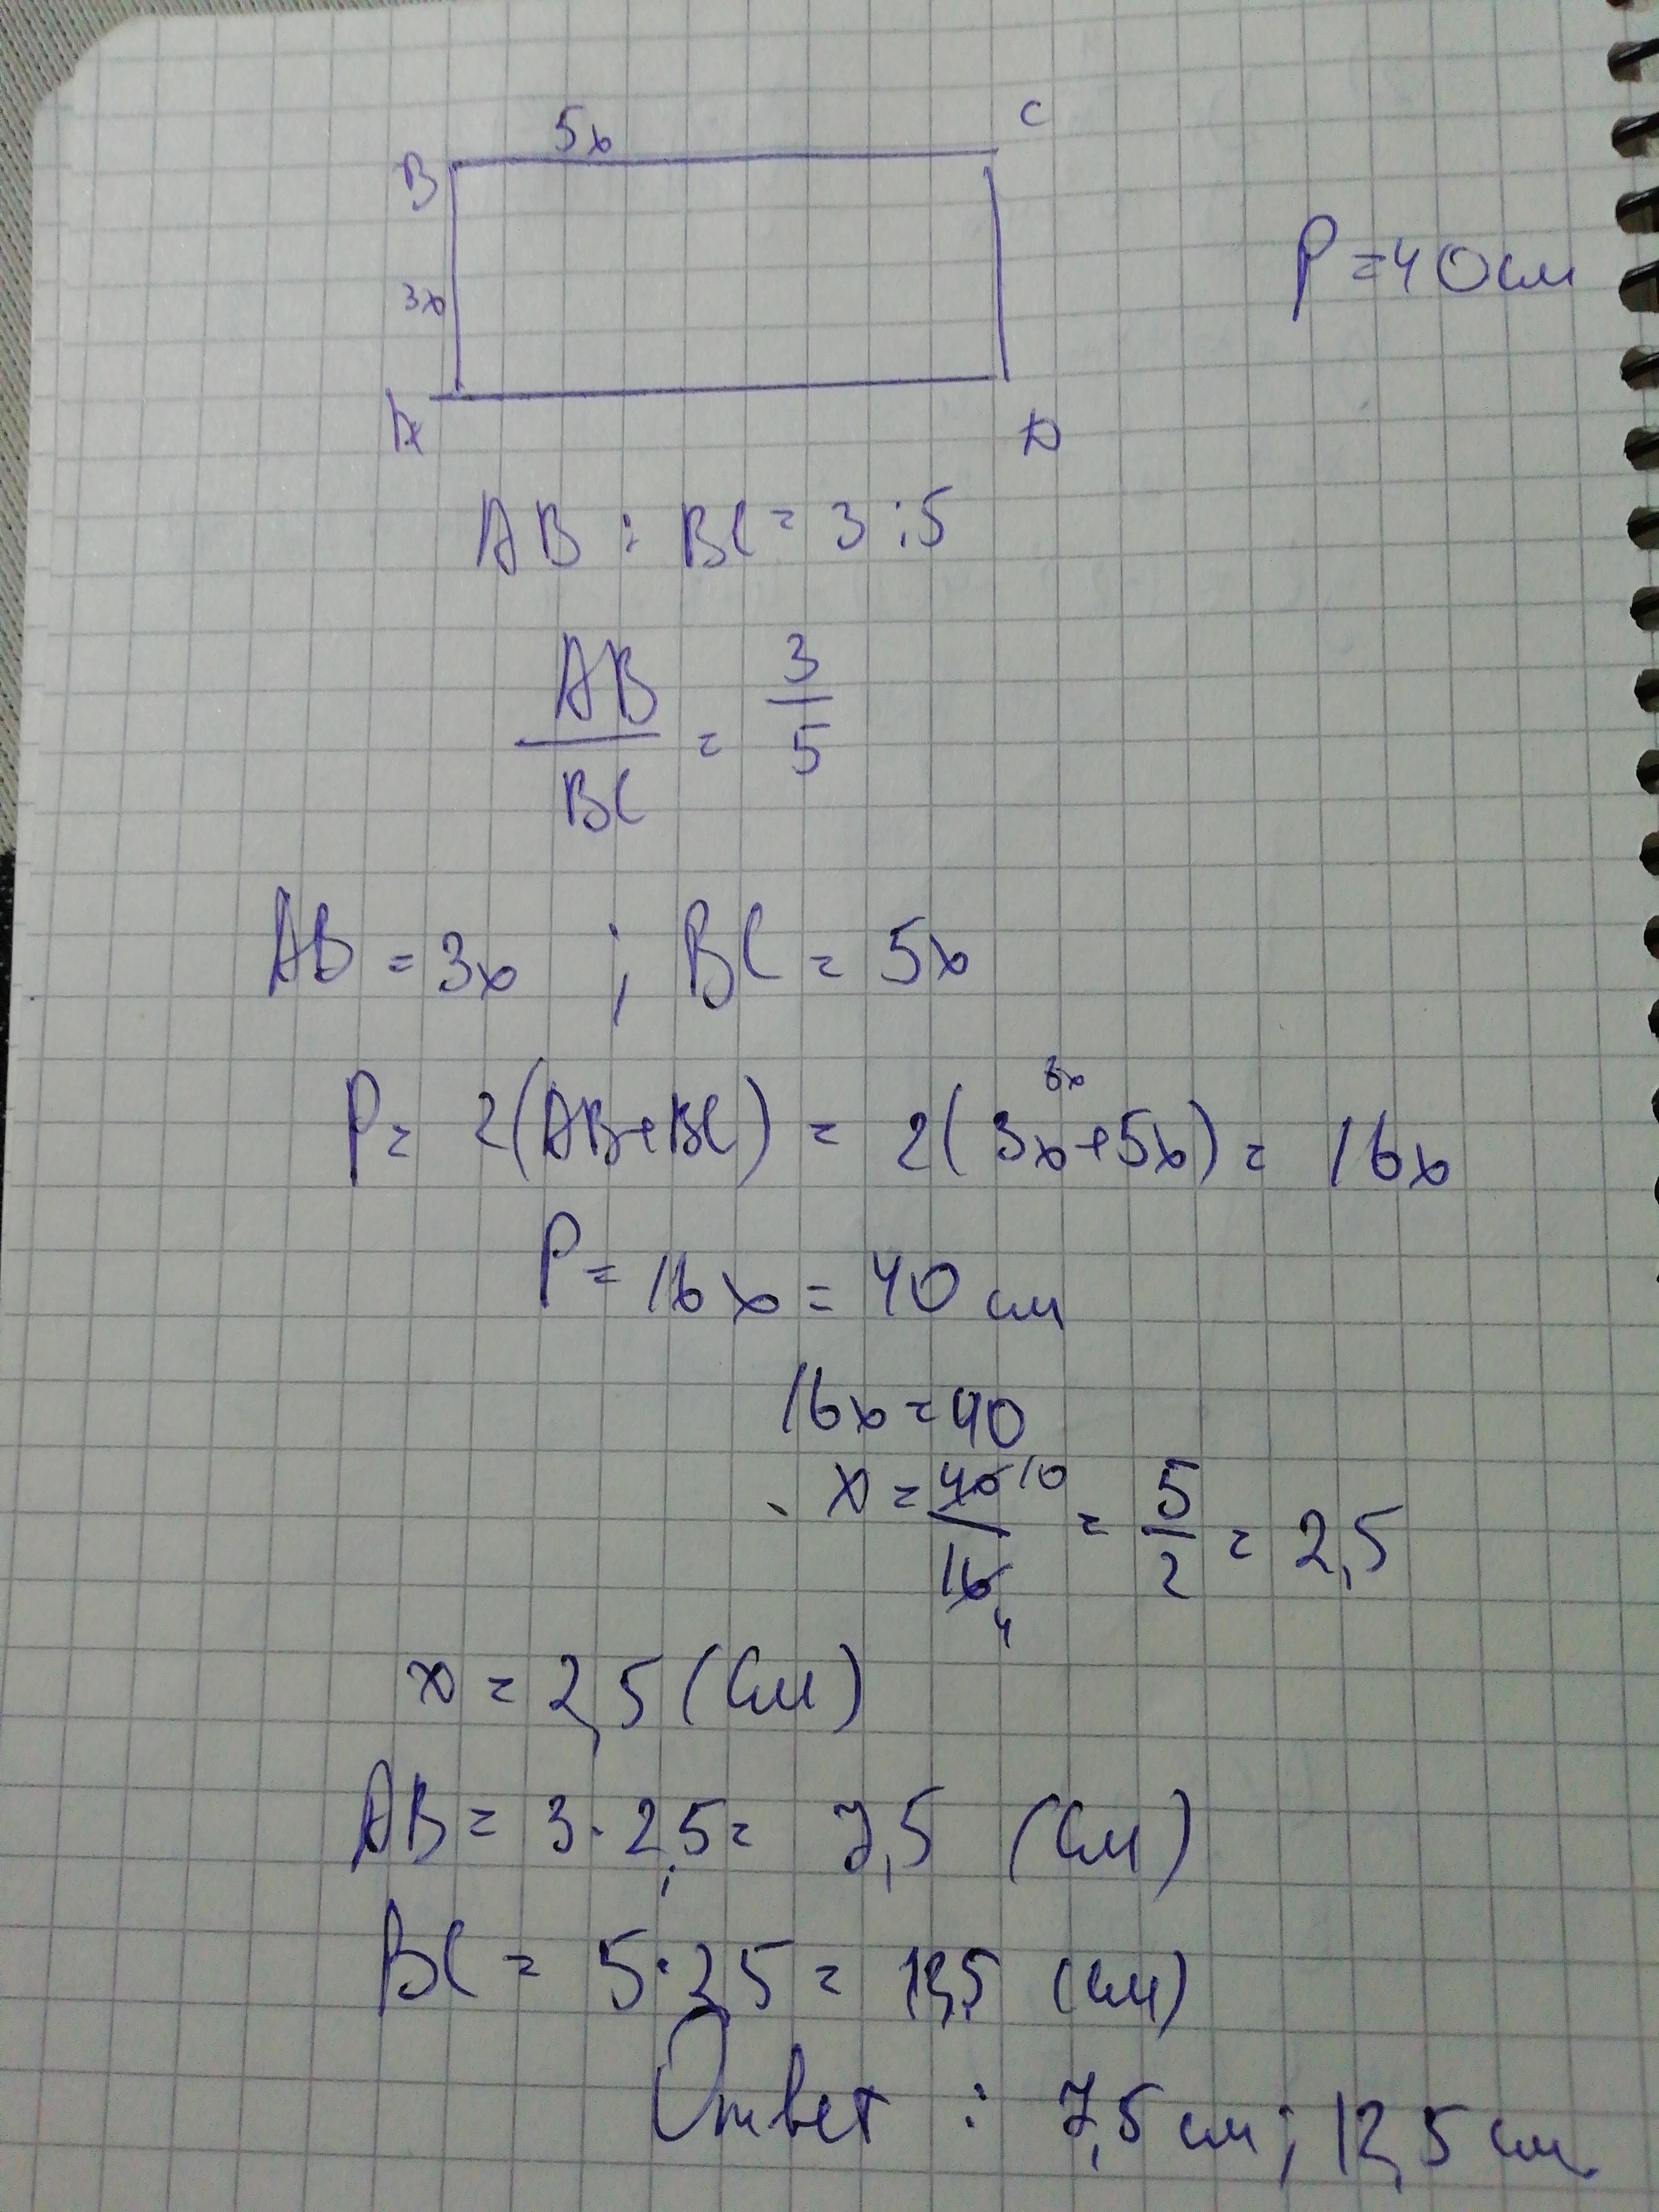 5x
C
B
P = 40 см
3x
A
D
AB : BC = 3 : 5
AB/BC = 3/5
AB = 3x ; BC = 5x
8x
P = 2(AB+BC) = 2(3x+5x) = 16x
P = 16x = 40 см
16x = 40
x = 40 10 / 16 4 = 5/2 = 2,5
x = 2,5 (см)
AB = 3·2,5 = 7,5 (см)
BC = 5·2,5 = 12,5 (см)
Ответ : 7,5 см ; 12,5 см